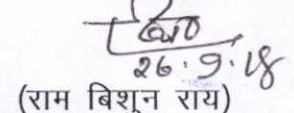 26.9.18
(राम बिशुन राय)